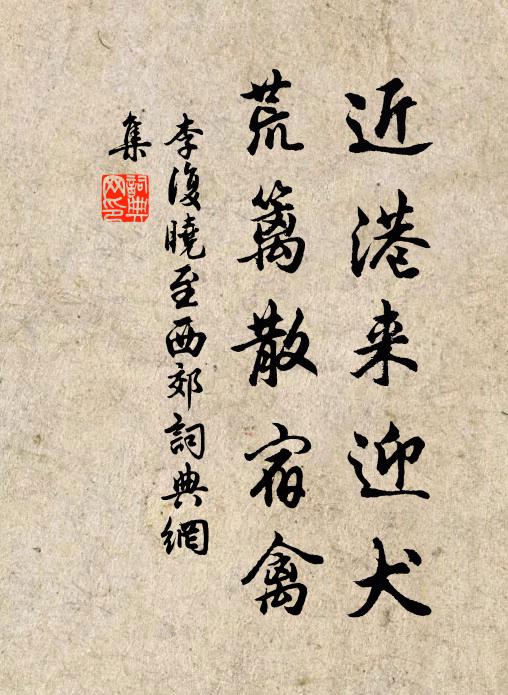 近港来迎犬
荒篱散宿禽
李復曉至西郊詞典網
集
詞典
网印